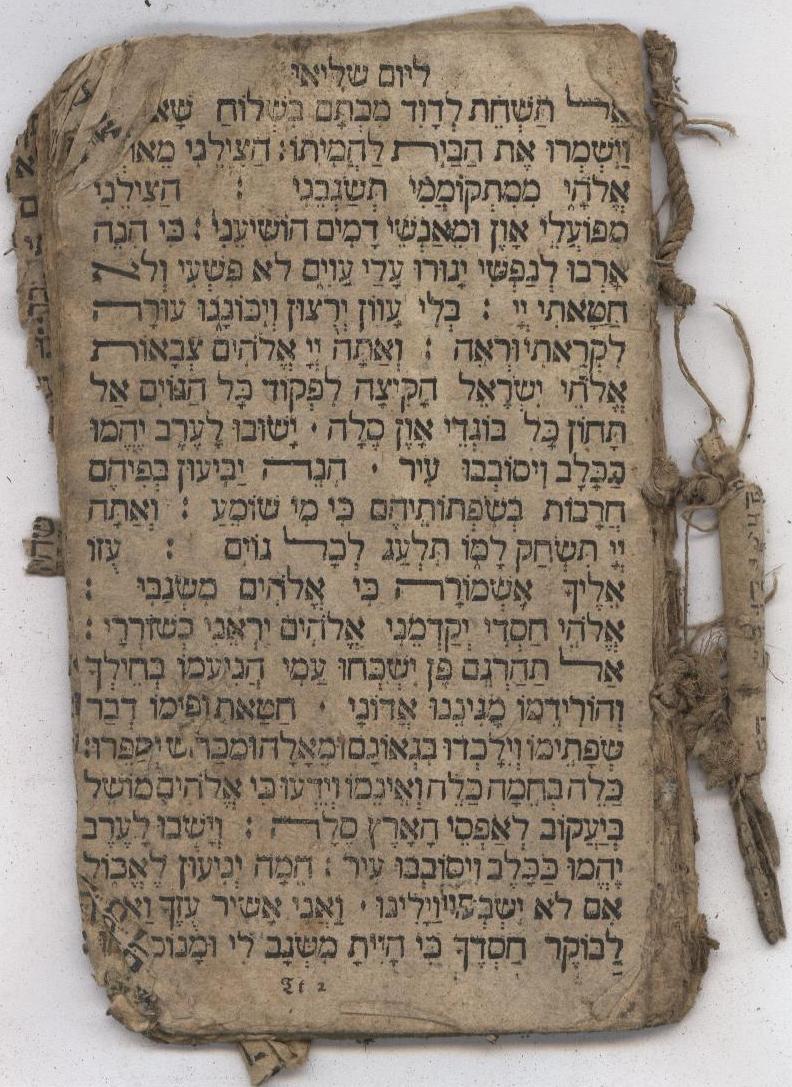 ליום שלישי
אַל תַּשְׁחֵת לְדָוִד מִכְתָּם בִּשְׁלוֹחַ
וַיִּשְׁמְרוּ אֶת הַבַּיִת לַהֲמִיתוֹ: הַצִּילֵנִי
אֱלֹהָי מִמִּתְקוֹמְמַי תְּשַׂגְּבֵנִי : הַצִּילֵנִי
מִפּוֹעֲלֵי אָוֶן וּמֵאַנְשֵׁי דָמִים הוֹשִׁיעֵנִי : כִּי הִנֵּה
אָרְבוּ לְנַפְשִׁי יָגוּרוּ עָלַי עַזִים לֹא פִשְׁעִי וְלֹא
חַטָּאתִי יְיָ : בְּלִי עָווֹן יְרֻצוּן וְיִכּוֹנָנוּ עוּרָה
לִקְרָאתִי וּרְאֵה : וְאַתָּה יְיָ אֱלֹהִים צְבָאוֹת
אֱלֹהֵי יִשְׂרָאֵל הָקִיצָה לִפְקוֹד כָּל הַגּוֹיִם אַל
תָּחוֹן כָּל בּוֹגְדֵי אָוֶן סֶלָה · יָשׁוּבוּ לָעֶרֶב יֶהֱמוּ
כַּכָּלֶב וִיסוֹבְבוּ עִיר · הִנֵּה יַבִּיעוּן בְּפִיהֶם
חֲרָבוֹת בְּשִׂפְתוֹתֵיהֶם כִּי מִי שׁוֹמֵעַ : וְאַתָּה
יְיָ תִּשְׂחַק לָמוֹ תִּלְעַג לְכָל גּוֹיִם : עֻזּוֹ
אֵלֶיךָ אֶשְׁמוֹרָה כִּי אֱלֹהִים מִשְׂגַּבִּי :
אֱלֹהֵי חַסְדִּי יְקַדְּמֵנִי אֱלֹהִים יַרְאֵנִי בְשׁוֹרְרָי :
אַל תַּהַרְגֵם פֶּן יִשְׁכְּחוּ עַמִּי הֲנִיעֵמוֹ בְחֵילְךָ
וְהוֹרִידֵמוֹ מָגִינֵּנוּ אֲדוֹנָי · חַטַּאת פִּימוֹ דְבַר
שְׂפָתֵימוֹ וְיִלָּכְדוּ בִגְאוֹנָם וּמֵאָלָה וּמִכַּחַשׁ יְסַפֵּרוּ:
כַּלֵּה בְחֵמָה כַּלֵּה וְאֵינֵמוֹ וְיֵדְעוּ כִּי אֱלֹהִים מוֹשֵׁל
בְּיַעֲקוֹב לְאַפְסֵי הָאָרֶץ סֶלָה : וְיָשֻׁבוּ לָעֶרֶב
יֶהֱמוּ כַכָּלֶב וִיסוֹבְבוּ עִיר : הֵמָּה יְנִיעוּן לֶאֱכוֹל
אִם לֹא יִשְׂבְּעוּ וַיָּלִינוּ · וַאֲנִי אָשִׁיר עֻזֶּךָ
לַבּוֹקֶר חַסְדֶּךָ כִּי הָיִיתָ מִשְׂגָּב לִי
Tt 2